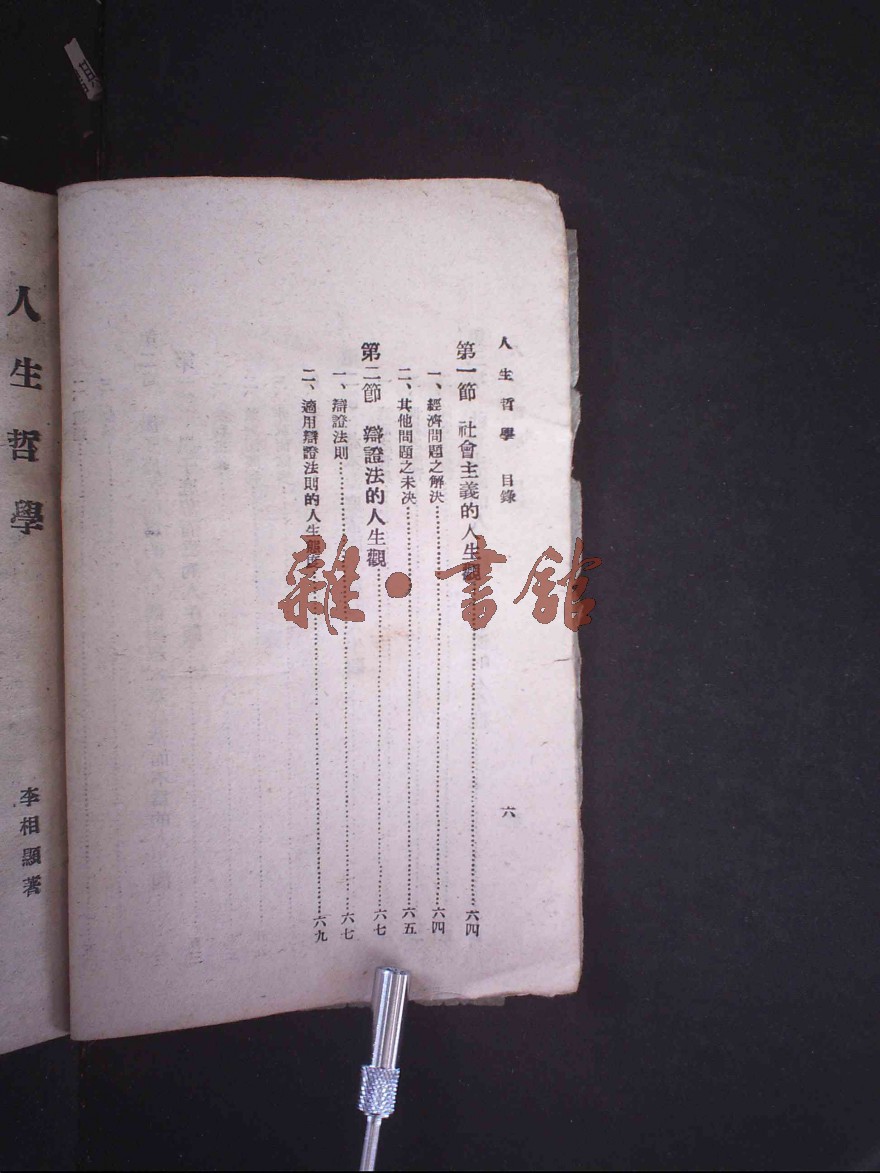 人生哲學 目錄 六
第一節 社會主義的人生觀……六四
一、經濟問題之解決……六四
二、其他問題之未決……六五
第二節 辯證法的人生觀……六七
一、辯證法則……六七
二、適用辯證法則的人生態度……六九
人生哲學
李相顯著
雜·書館